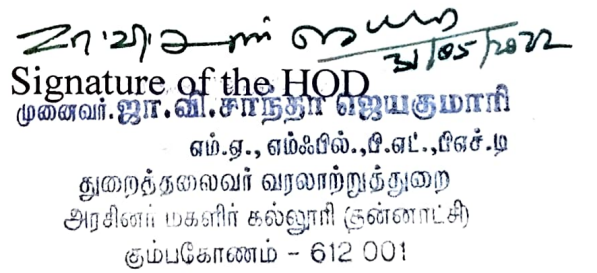 31/05/2022
Signature of the HOD
முனைவர்.ஜா.வி.சாந்தா ஜெயகுமாரி
எம்.ஏ., எம்ஃபில்.,பி.எட்.,பிஎச்.டி
துறைத்தலைவர் வரலாற்றுத்துறை
அரசினர் மகளிர் கல்லூரி (தன்னாட்சி)
கும்பகோணம் - 612 001